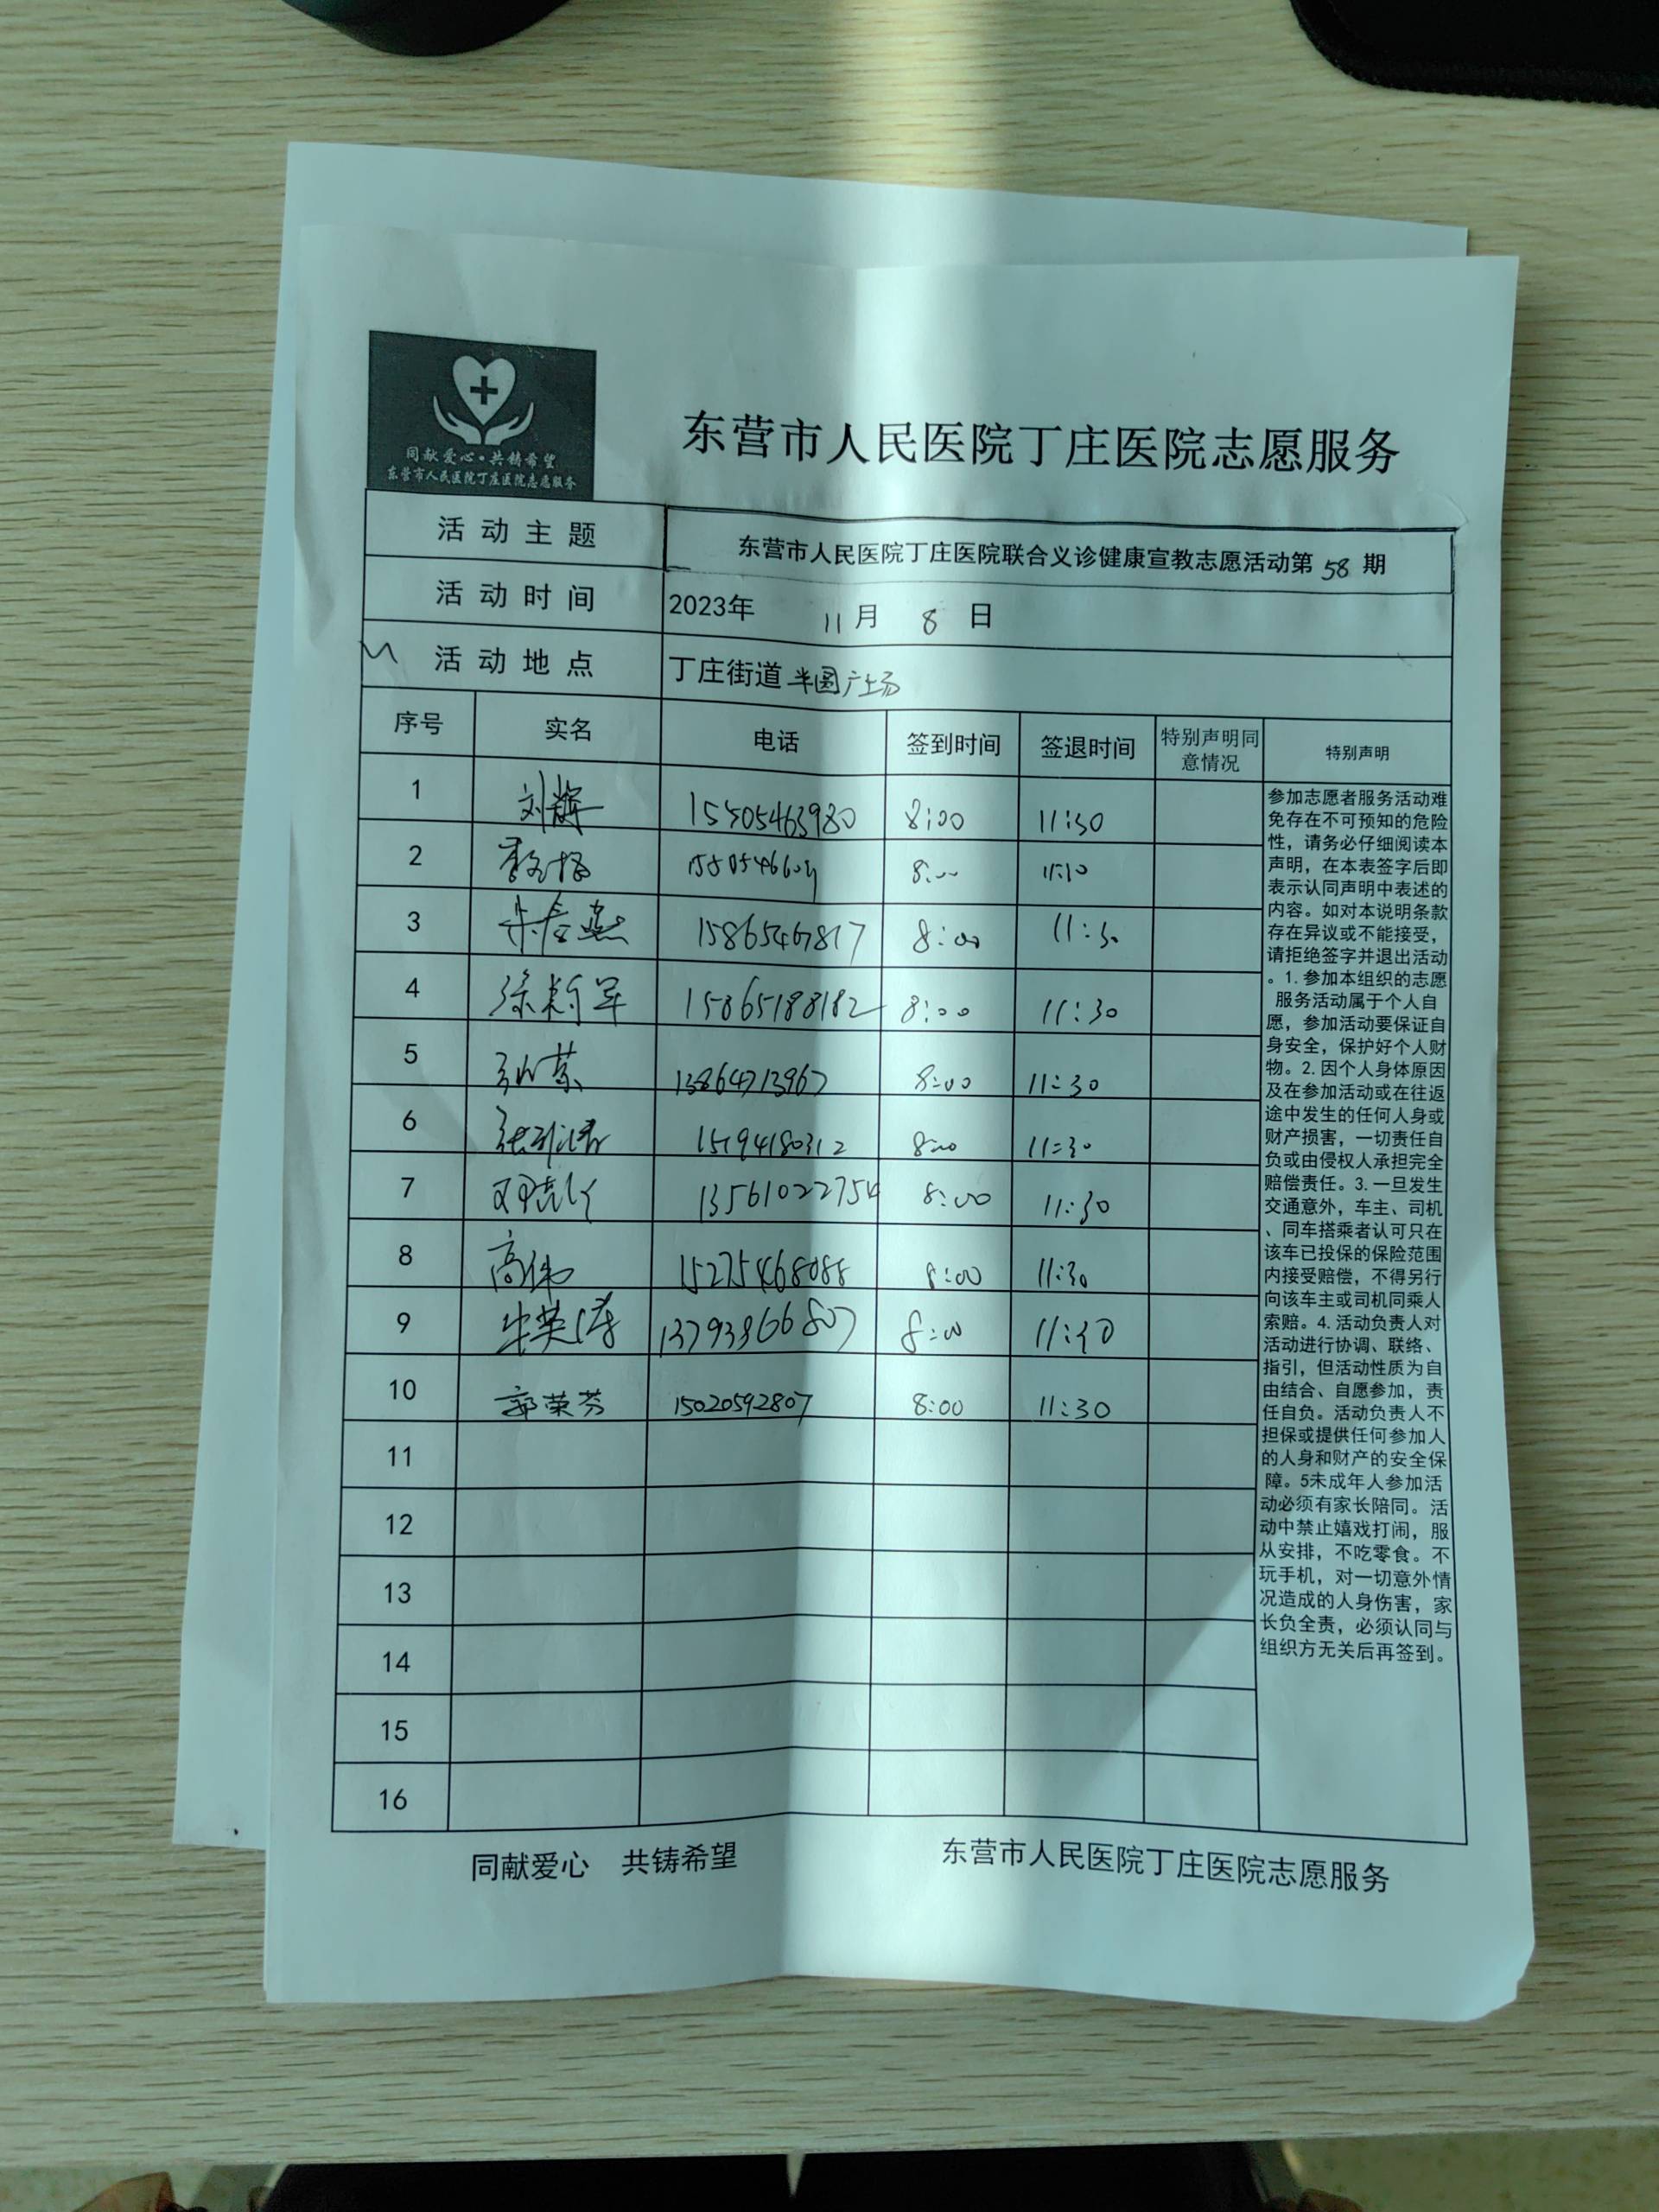 同献爱心·共铸希望
东营市人民医院丁庄医院志愿服务
东营市人民医院丁庄医院志愿服务
活动主题 东营市人民医院丁庄医院联合义诊健康宣教志愿活动第58期
活动时间 2023年 11月 8日
活动地点 丁庄街道半圆广场
序号 实名 电话 签到时间 签退时间 特别声明同意情况 特别声明
1 刘辉 8:00 11:30
2
3 15865467817 8:00 11:30
4 15865188182 8:00 11:30
5 13864713967 8:00 11:30
6 15194180312 8:00 11:30
7 13561022754 8:00 11:30
8 高伟 15275468088 8:00 11:30
9 8:00 11:30
10 郭荣芬 15020592807 8:00 11:30
11
12
13
14
15
16
参加志愿者服务活动难
免存在不可预知的危险
性，请务必仔细阅读本
声明，在本表签字后即
表示认同声明中表述的
内容。如对本说明条款
存在异议或不能接受，
请拒绝签字并退出活动
。1.参加本组织的志愿
服务活动属于个人自
愿，参加活动要保证自
身安全，保护好个人财
物。2.因个人身体原因
及在参加活动或在往返
途中发生的任何人身或
财产损害，一切责任自
负或由侵权人承担完全
赔偿责任。3.一旦发生
交通意外，车主、司机
、同车搭乘者认可只在
该车已投保的保险范围
内接受赔偿，不得另行
向该车主或司机同乘人
索赔。4.活动负责人对
活动进行协调、联络、
指引，但活动性质为自
由结合、自愿参加，责
任自负。活动负责人不
担保或提供任何参加人
的人身和财产的安全保
障。5未成年人参加活
动必须有家长陪同。活
动中禁止嬉戏打闹，服
从安排，不吃零食。不
玩手机，对一切意外情
况造成的人身伤害，家
长负全责，必须认同与
组织方无关后再签到。
同献爱心 共铸希望 东营市人民医院丁庄医院志愿服务